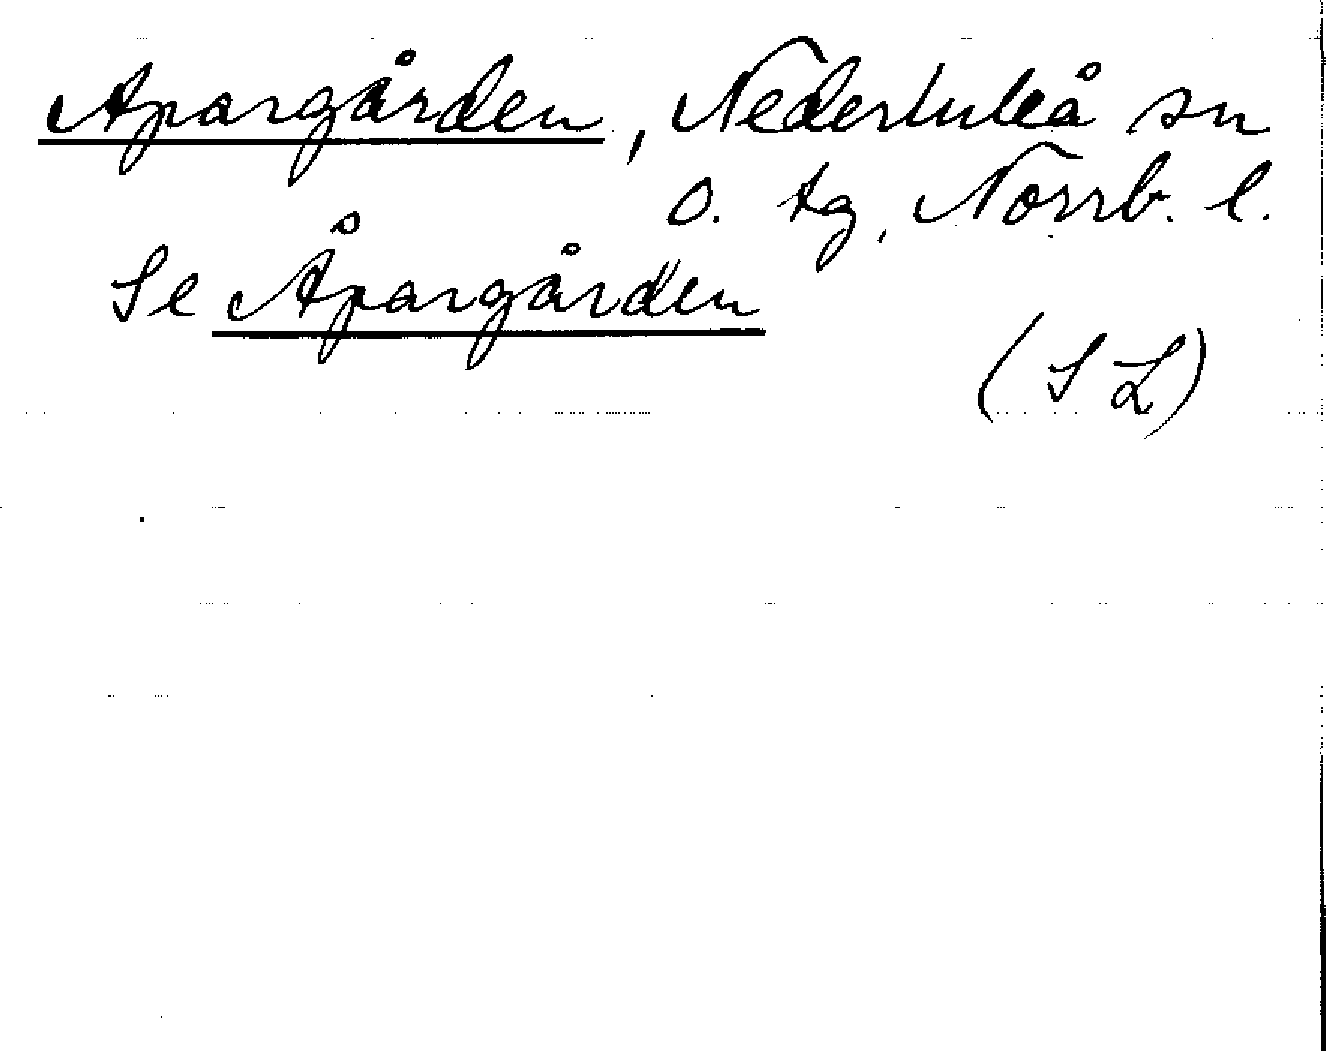 Apargården, Nederluleå sn
o. tg, Norrb. l.
Se Åpargården
(S L)